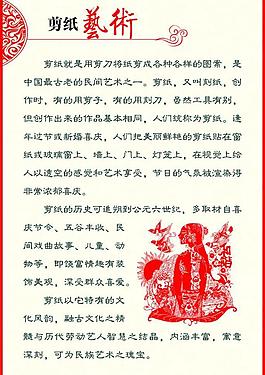 剪纸藝術
剪纸就是用剪刀将纸剪成各种各样的图案，是
中国最古老的民间艺术之一。剪纸，又叫刻纸，创
作时，有的用剪子，有的用刻刀，虽然工具有别，
但创作出来的作品基本相同，人们统称为剪纸。逢
年过节或新婚喜庆，人们把美丽鲜艳的剪纸贴在窗
纸或玻璃窗上、墙上、门上、灯笼上，在视觉上给
人以透空的感觉和艺术享受，节日的气氛被渲染得
非常浓郁喜庆。
剪纸的历史可追朔到公元六世纪，多取材自喜
庆节令、五谷丰收、民
间戏曲故事、儿童、动
物等，即饶富情趣有装
饰美观，深受群众喜爱。
剪纸以它特有的文
化风韵，融古文化之精
髓与历代劳动艺人智慧之结晶，内涵丰富，寓意
深刻，可为民族艺术之瑰宝。